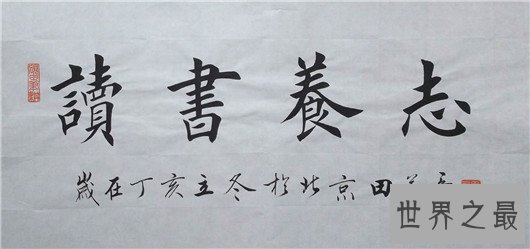 讀書養志
歲在丁亥立冬於北京田
世界之最